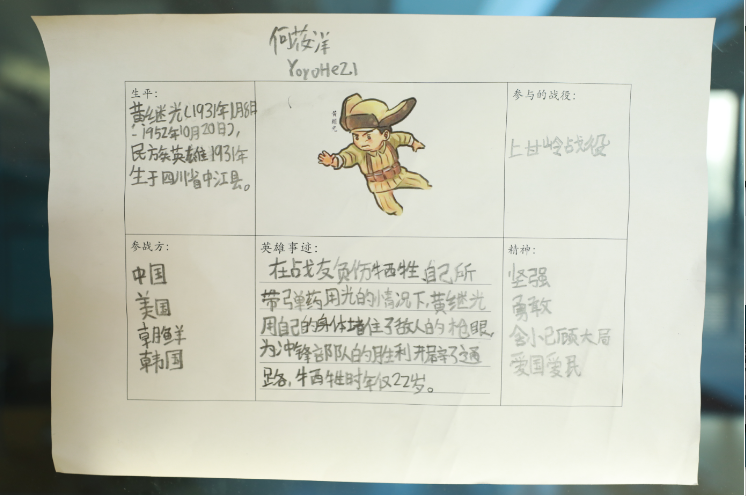 何莜洋
YoyoHe2.1
生平:
黄继光(1931年1月8日
-1952年10月20日),
民族英雄1931年
生于四川省中江县。
黄继光
参与的战役:
上甘岭战役
参战方:
中国
美国
朝鲜
韩国
英雄事迹:
在战友负伤牺牲,自己所
带弹药用光的情况下,黄继光
用自己的身体堵住了敌人的枪眼,
为冲锋部队的胜利开辟了通
路,牺牲时年仅22岁。
精神:
坚强
勇敢
舍小己顾大局
爱国爱民